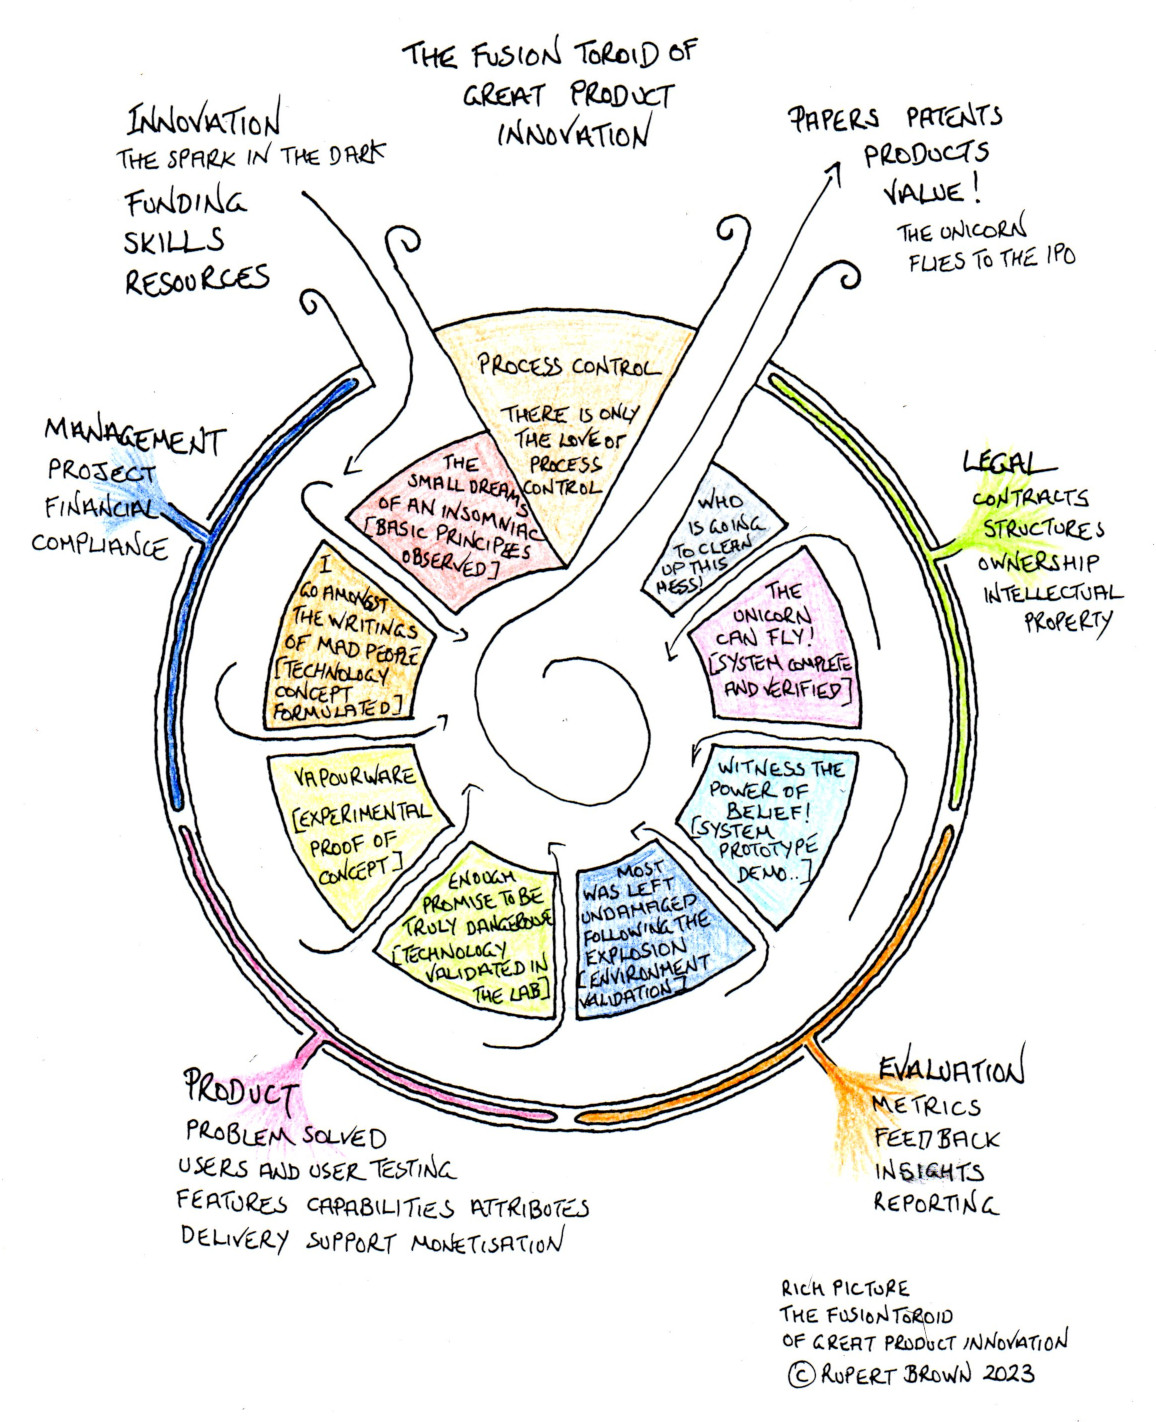 THE FUSION TOROID OF
GREAT PRODUCT
INNOVATION
INNOVATION
THE SPARK IN THE DARK
FUNDING
SKILLS
RESOURCES
PAPERS PATENTS
PRODUCTS
VALUE!
THE UNICORN
FLIES TO THE IPO
PROCESS CONTROL
THERE IS ONLY
THE LOVE OF
PROCESS
CONTROL
MANAGEMENT
PROJECT
FINANCIAL
COMPLIANCE
LEGAL
CONTRACTS
STRUCTURES
OWNERSHIP
INTELLECTUAL
PROPERTY
THE
SMALL DREAMS
OF AN INSOMNIAC
[BASIC PRINCIPLES
OBSERVED]
I
GO AMONGST
THE WRITINGS
OF MAD PEOPLE
[TECHNOLOGY
CONCEPT
FORMULATED]
VAPOURWARE
[EXPERIMENTAL
PROOF OF
CONCEPT]
ENOUGH
PROMISE TO BE
TRULY DANGEROUS
[TECHNOLOGY
VALIDATED IN
THE LAB]
MOST
WAS LEFT
UNDAMAGED
FOLLOWING THE
EXPLOSION
[ENVIRONMENT
VALIDATION]
WITNESS THE
POWER OF
BELIEF!
[SYSTEM
PROTOTYPE
DEMO..]
THE
UNICORN
CAN FLY!
[SYSTEM COMPLETE
AND VERIFIED]
WHO
IS GOING
TO CLEAN
UP THIS
MESS!
PRODUCT
PROBLEM SOLVED
USERS AND USER TESTING
FEATURES CAPABILITIES ATTRIBUTES
DELIVERY SUPPORT MONETISATION
EVALUATION
METRICS
FEEDBACK
INSIGHTS
REPORTING
RICH PICTURE
THE FUSION TOROID
OF GREAT PRODUCT INNOVATION
© RUPERT BROWN 2023